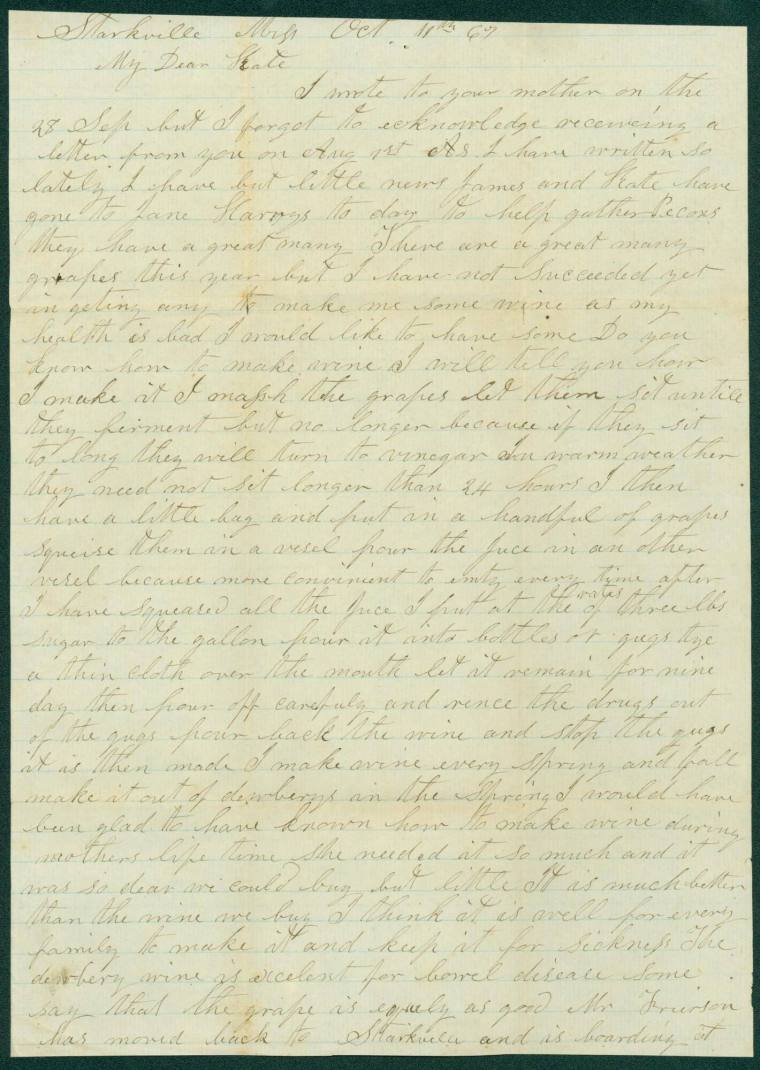 Starkville Miss Oct 11th 67
My Dear Kate
I wrote to your mother on the
28 Sep but I forgot to ecknowledge receiveing a
letter from you on Aug 1st As I have written so
lately I have but little news James and Kate have
gone to Jane Harvys to day to help gather Pecons
they have a great many There are a great many
grapes this year but I have not succeeded yet
in geting any to make me some wine as my
health is bad I would like to have some Do you
know how to make wine I will tell you how
I make it I mash the grapes let them sit untill
they ferment but no longer because if they sit
to long they will turn to vinegar In warm weather
they need not sit longer than 24 hours I then
have a little bag and put in a handful of grapes
squeise them in a vesel pour the juce in an other
vesel because more convinient to emty every time after
I have squeased all the juce I put at the rates of three lbs
sugar to the gallon pour it into bottles or gugs tye
a thin cloth over the mouth let it remain for nine
day then pour off carefuly and rence the drugs out
of the gugs pour back the wine and stop the gugs
it is then made I make wine every spring and fall
make it out of dewberys in the Spring I would have
been glad to have known how to make wine during
mothers life time she needed it so much and it
was so dear we could buy but little It is much better
than the wine we buy I think it is well for every
family to make it and keep it for sickness The
dewbery wine is excelent for bowel disease Some
say that the grape is equely as good Mr Frierson
has moved back to Starkville and is boarding at